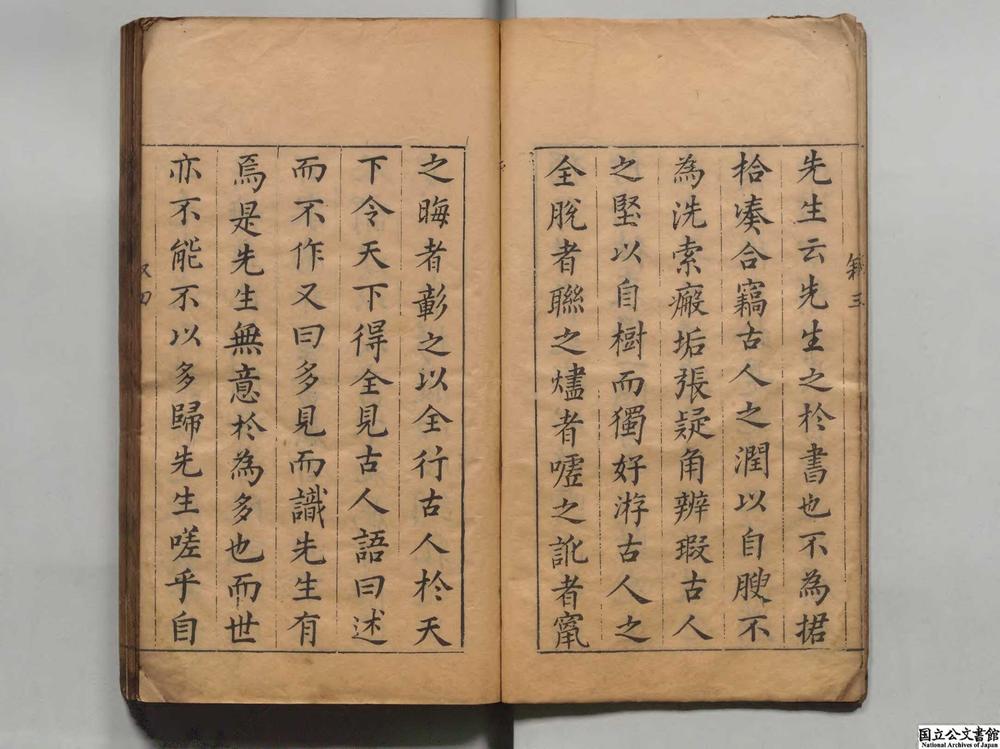 先生云先生之於書也不為捃
拾湊合竊古人之潤以自腴不
為洗索瘢垢張疑角辨瑕古人
之堅以自樹而獨好游古人之
全脫者聯之燼者噓之訛者竄
之晦者彰之以全行古人於天
下令天下得全見古人語曰述
而不作又曰多見而識先生有
焉是先生無意於為多也而世
亦不能不以多歸先生嗟乎自
国立公文書館
National Archives of Japan